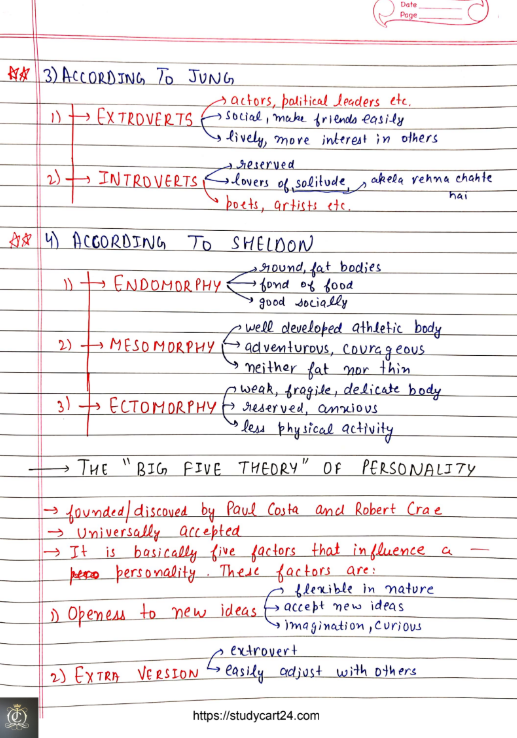 Date
Page
3) ACCORDING TO JUNG
1) → EXTROVERTS
→ actors, political leaders etc.
→ social, make friends easily
→ lively, more interest in others
2) → INTROVERTS
→ reserved
→ lovers of solitude, → akela rehna chahte hai
→ poets, artists etc.
4) ACCORDING TO SHELDON
1) → ENDOMORPHY
→ round, fat bodies
→ fond of food
→ good socially
2) → MESOMORPHY
→ well developed athletic body
→ adventurous, courageous
→ neither fat nor thin
3) → ECTOMORPHY
→ weak, fragile, delicate body
→ reserved, anxious
→ less physical activity
→ THE "BIG FIVE THEORY" OF PERSONALITY
→ founded/discoved by Paul Costa and Robert Crae
→ Universally accepted
→ It is basically five factors that influence a —
personality. These factors are:
1) Openess to new ideas
→ flexible in nature
→ accept new ideas
→ imagination, curious
2) EXTRA VERSION
→ extrovert
→ easily adjust with others
https://studycart24.com